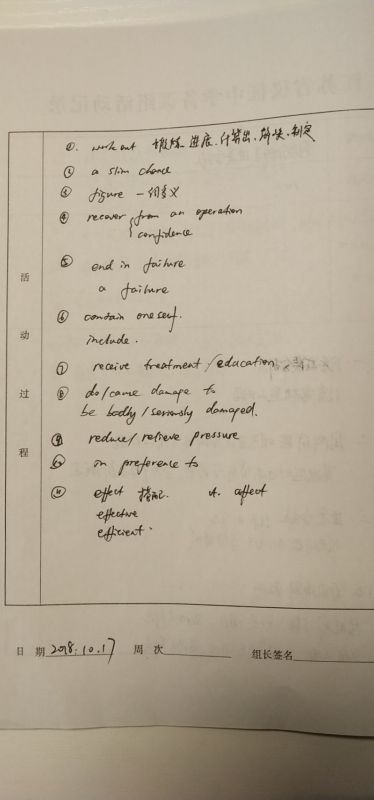 ①. work out 锻炼、进展、计算出、解决、制定
② a slim chance
③ figure 一词多义
④ recover { from an operation
confidence
⑤ end in failure
a failure
⑥ contain oneself.
include.
⑦ receive treatment / education
⑧ do/cause damage to
be badly / seriously damaged.
⑨ reduce / relieve pressure
⑩ in preference to
⑪ effect 搭配. vt. affect
effective
efficient.
活动过程
日 期 2018.10.17 周 次 组长签名